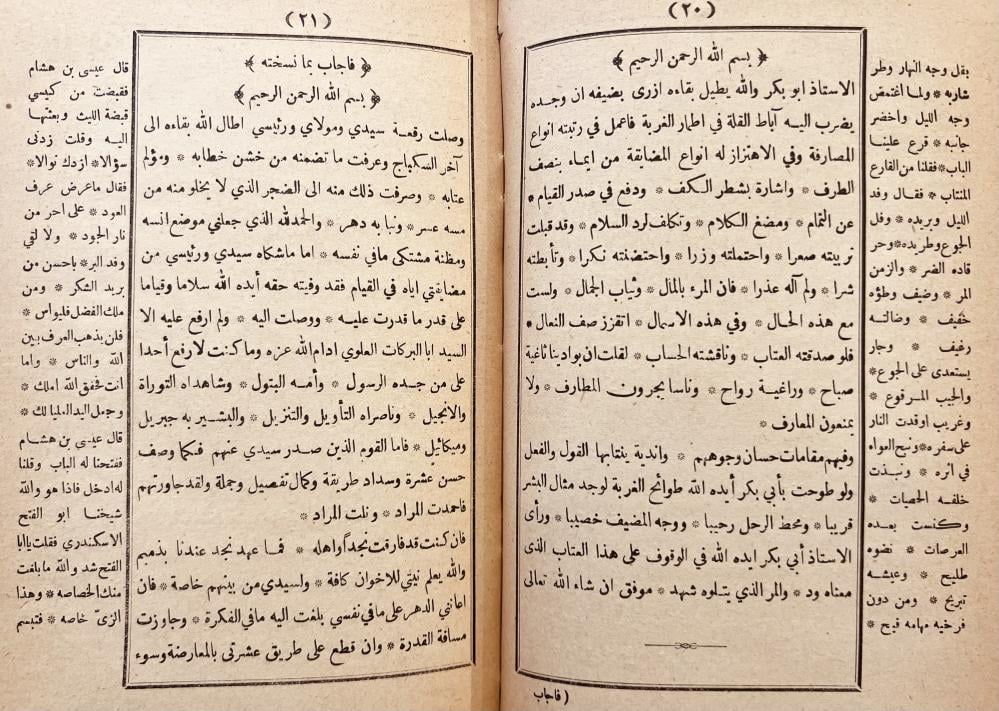 (٢٠)
﴿ بسم الله الرحمن الرحيم ﴾
الاستاذ ابو بكر والله يطيل بقاءه ازرى بضيفه ان وجده
يضرب اليه آباط القلة في اطمار الغربة فاعمل في رتبته انواع
المصارفة وفي الاهتزاز له انواع المضايقة من ايماء بنصف
الطرف * واشارة بشطر الكف * ودفع في صدر القيام *
عن التمام * ومضغ الكلام * وتكلف لرد السلام * وقد قبلت
تربيته صعرا * واحتملته وزرا * واحتضنته نكرا * وتأبطته
شرا * ولم آله عذرا * فان المرء بالمال * وثياب الجمال * ولست
مع هذه الحال * وفي هذه الاسمال * اتقزز صف النعال *
فلو صدقته العتاب * وناقشته الحساب * لقلت ان بوادينا ثاغية
صباح * وراغية رواح * وناسا يجرون المطارف * ولا
يمنعون المعارف *
وفيهم مقامات حسان وجوههم * واندية ينتابها القول والفعل
ولو طوحت بأبي بكر أيده الله طوائح الغربة لوجد مثال البشر
قريبا * ومحط الرحل رحيبا * ووجه المضيف خصيبا * ورأى
الاستاذ أبي بكر ايده الله في الوقوف على هذا العتاب الذى
معناه ود * والمر الذي يتلوه شهد * موفق ان شاء الله تعالى
(فاجاب
بقل وجه النهار وطر
شاربه * ولما اغتمض
وجه الليل واخضر
جانبه * قرع علينا
الباب * فقلنا من القارع
المنتاب * فقال وفد
الليل وبريده * وفل
الجوع وطريده * وحر
قاده الضر * والزمن
المر * وضيف وطؤه
خفيف * وضالته
رغيف * وجار
يستعدى على الجوع *
والجيب المرقوع *
وغريب اوقدت النار
على سفره * ونبح العواء
في اثره * ونبذت
خلفه الحصيات *
وكنست بعده
العرصات * نضوه
طليح * وعيشه
تبريح * ومن دون
فرخيه مهامه فيح *
(٢١)
﴿ فاجاب بما نسخته ﴾
﴿ بسم الله الرحمن الرحيم ﴾
وصلت رقعة سيدي ومولاي ورئيسي اطال الله بقاءه الى
آخر السكباج وعرفت ما تضمنه من خشن خطابه * ومؤلم
عتابه * وصرفت ذلك منه الى الضجر الذي لا يخلو منه من
مسه عسر * ونبا به دهر * والحمد لله الذي جعلني موضع انسه
ومظنة مشتكى ما في نفسه * اما ما شكاه سيدي ورئيسي من
مضايقتي اياه في القيام فقد وفيته حقه أيده الله سلاما وقياما
على قدر ما قدرت عليه * ووصلت اليه * ولم ارفع عليه الا
السيد ابا البركات العلوي ادام الله عزه وما كنت لا رفع أحدا
على من جده الرسول * وأمه البتول * وشاهداه التوراة
والانجيل * وناصراه التأويل والتنزيل * والبشير به جبريل
وميكائيل * فاما القوم الذين صدر سيدي عنهم فكما وصف
حسن عشرة وسداد طريقة وكمال تفصيل وجملة ولقد جاورتهم
فاحمدت المراد * ونلت المراد *
فان كنت قد فارقت نجدا واهله * فما عهد نجد عندنا بذميم
والله يعلم نيتي للاخوان كافة * ولسيدي من بينهم خاصة * فان
اعانني الدهر على ما في نفسي بلغت اليه ما في الفكرة * وجاوزت
مسافة القدرة * وان قطع على طريق عشرتي بالمعارضة وسوء
قال عيسى بن هشام
فقبضت من كيسي
قبضة الليث وبعثتها
اليه وقلت زدنى
سؤالا * ازدك نوالا *
فقال ما عرض عرف
العود * على احر من
نار الجود * ولا لقي
وفد البر * باحسن من
بريد الشكر * ومن
ملك الفضل فليواس *
فلن يذهب العرف بين
الله والناس * واما
انت فحقق الله املك *
وجعل اليد العليا لك *
قال عيسى بن هشام
ففتحنا له الباب وقلنا
له ادخل فاذا هو والله
شيخنا ابو الفتح
الاسكندري فقلت يا ابا
الفتح شد والله ما بلغت
منك الخصاصه * وهذا
الزى خاصه * فتبسم